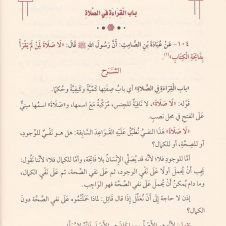 باب القراءة في الصلاة
١٠٤ - عن عبادة بن الصامت: أن رسول الله ﷺ قال: «لا صلاة لمن لم يقرأ
بفاتحة الكتاب»
الشرح
«باب القراءة في الصلاة» أي باب صفتها كمية وكيفية وحكما.
قوله: «لا صلاة»، لا نافية للجنس، مركبة مع اسمها، و(صلاة) اسمها مبني
على الفتح في محل نصب.
«لا صلاة» هذا النفي نطبق عليه القواعد السابقة: هل هو نفي للوجود،
أو للصحة، أو للكمال؟
أما للوجود فلا؛ لأنه قد يصلي الإنسان بلا فاتحة، وأما للكمال فلا؛ لأننا نقول:
يجب أن يحمل أولا على نفي الوجود، ثم على نفي الصحة، ثم على نفي الكمال،
وما دام يمكن أن يحمل على نفي الصحة فهو الواجب.
ولا حاجة إلى أن نعلل إذا قال قائل: لماذا حملتموه على نفي الصحة دون
الكمال؟